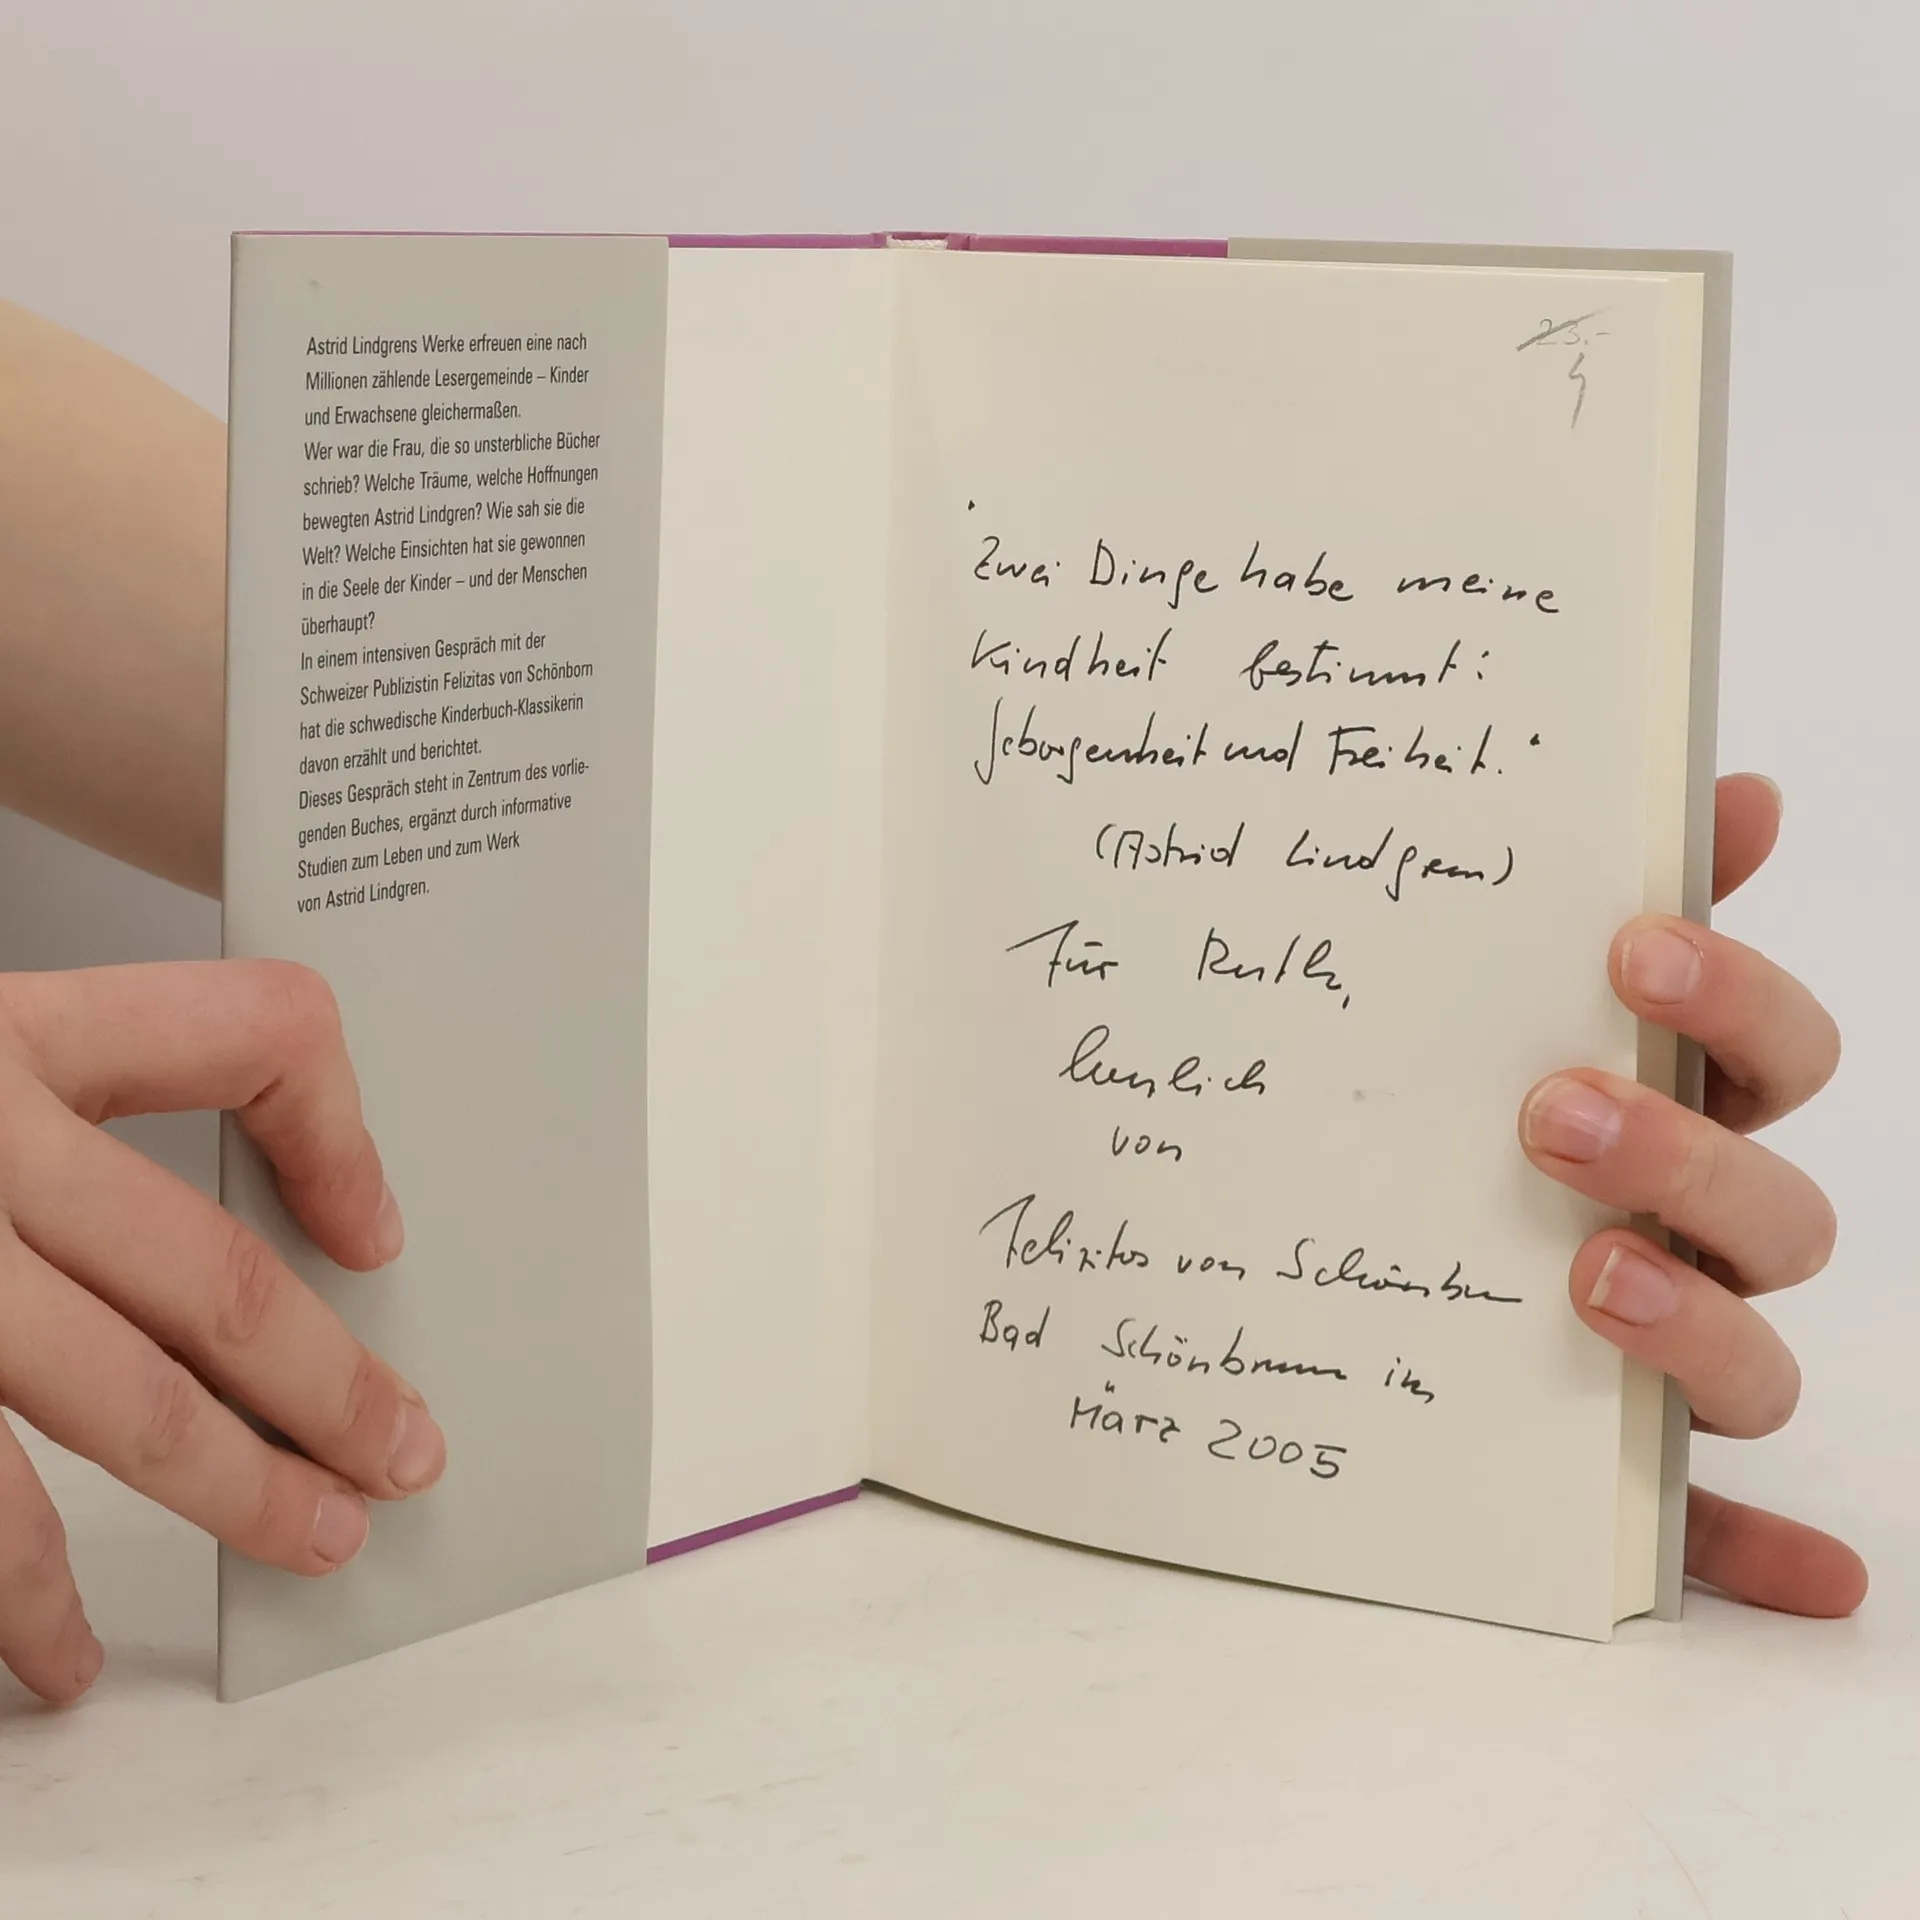 Astrid Lindgrens Werke erfreuen eine nach
Millionen zählende Lesergemeinde – Kinder
und Erwachsene gleichermaßen.
Wer war die Frau, die so unsterbliche Bücher
schrieb? Welche Träume, welche Hoffnungen
bewegten Astrid Lindgren? Wie sah sie die
Welt? Welche Einsichten hat sie gewonnen
in die Seele der Kinder – und der Menschen
überhaupt?
In einem intensiven Gespräch mit der
Schweizer Publizistin Felizitas von Schönborn
hat die schwedische Kinderbuch-Klassikerin
davon erzählt und berichtet.
Dieses Gespräch steht in Zentrum des vorlie-
genden Buches, ergänzt durch informative
Studien zum Leben und zum Werk
von Astrid Lindgren.
23.-
"Zwei Dinge habe meine
Kindheit bestimmt:
Geborgenheit und Freiheit."
(Astrid Lindgren)
Für Ruth,
herzlich
von
Felizitas von Schönborn
Bad Schönbrunn im
März 2005